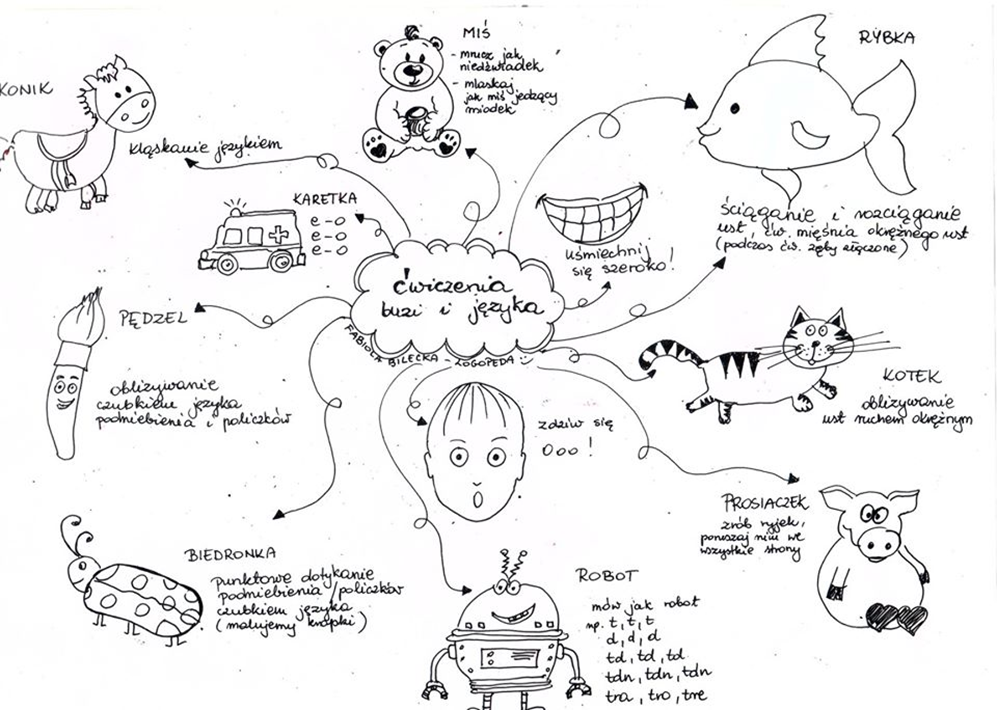 ćwiczenia
buzi i języka
FABIOLA BILECKA - LOGOPEDA
KONIK
kląskanie językiem
MIŚ
- mrucz jak
niedźwiadek
- mlaskaj
jak miś jedzący
miodek
RYBKA
ściąganie i rozciąganie
ust, ćw. mięśnia okrężnego ust
(podczas ćw. zęby złączone)
KARETKA
e-o
e-o
e-o
uśmiechnij
się szeroko!
PĘDZEL
oblizywanie
czubkiem języka
podniebienia i policzków
KOTEK
oblizywanie
ust ruchem okrężnym
zdziw się
Ooo!
PROSIACZEK
zrób ryjek,
poruszaj nim we
wszystkie strony
BIEDRONKA
punktowe dotykanie
podniebienia/policzków
czubkiem języka
(malujemy kropki)
ROBOT
mów jak robot
np. t, t, t
d, d, d
td, td, td
tdn, tdn, tdn
tra, tro, tre